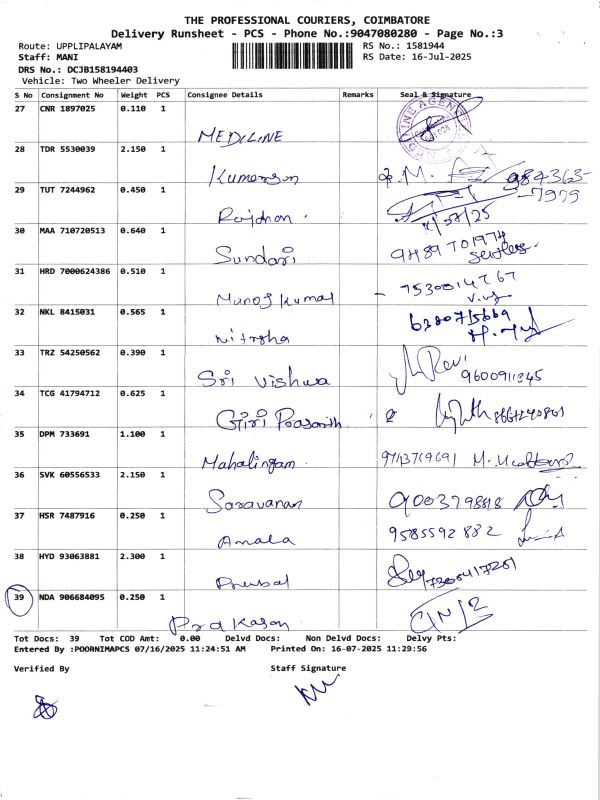 THE PROFESSIONAL COURIERS, COIMBATORE
Delivery Runsheet - PCS - Phone No.:9047080280 - Page No.:3
Route: UPPLIPALAYAM
RS No.: 1581944
Staff: MANI
RS Date: 16-Jul-2025
DRS No.: DCJB158194403
Vehicle: Two Wheeler Delivery
S No Consignment No Weight PCS Consignee Details Remarks Seal & Signature
27 CNR 1897025 0.110 1
MEDILINE
28 TDR 5530039 2.150 1
Kumaresan
984363-
29 TUT 7244962 0.450 1
-7979
Rajdhan.
30 MAA 710720513 0.640 1
Sundari
9489701974
31 HRD 7000624386 0.510 1
Manoj Kumal
32 NKL 8415031 0.565 1
33 TRZ 54250562 0.390 1
Sri Vishwa
Ravi
9600911345
34 TCG 41794712 0.625 1
Giri Prasanth
35 DPM 733691 1.100 1
Mahalingam
36 SVK 60556533 2.150 1
Saravanan
37 HSR 7487916 0.250 1
Amala
9585592882
38 HYD 93063881 2.300 1
39 NDA 906684095 0.250 1
Prakasan
Tot Docs: 39 Tot COD Amt: 0.00 Delvd Docs: Non Delvd Docs: Delvy Pts:
Entered By :POORNIMAPCS 07/16/2025 11:24:51 AM Printed On: 16-07-2025 11:29:56
Verified By
Staff Signature